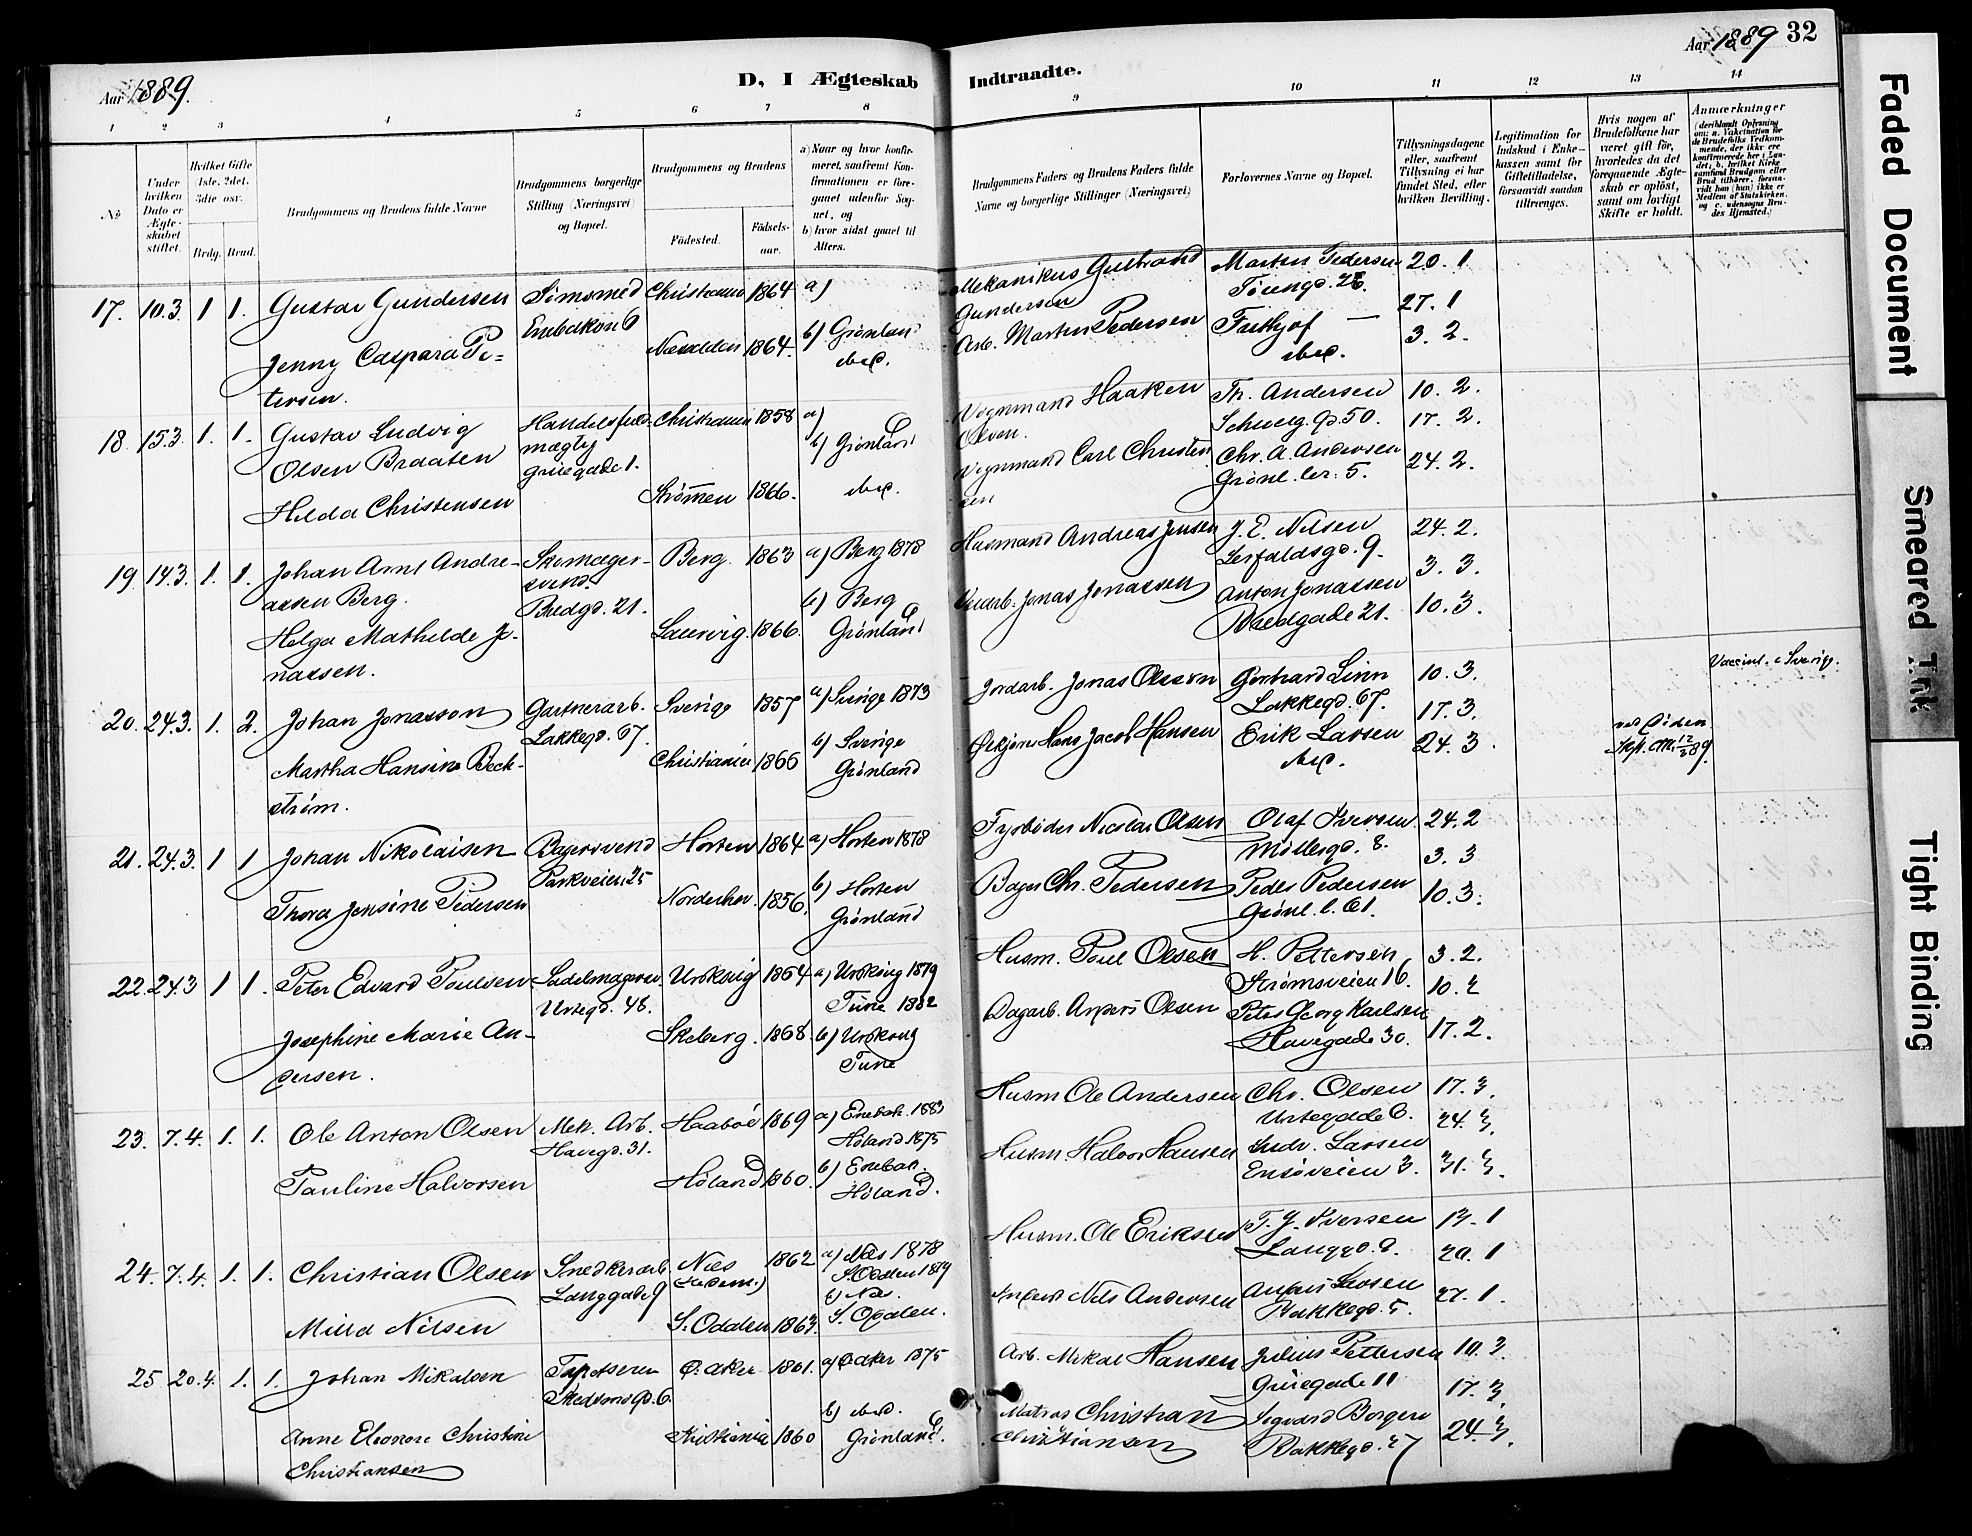 Aar 1889.
D, I Ægteskab
Indtraadte.
Aar 1889 32
1 2 3 4 5 6 7 8 9 10 11 12 13 14
No
Under hvilken Dato er Ægteskabet stiftet.
Hvilket Gifte 1ste, 2det, 3die osv.
Brdg. Brud.
Brudgommens og Brudens fulde Navne
Brudgommens borgerlige Stilling (Næringsvei) og Bopæl.
Brudgommens og Brudens
Födested.
Födsels-aar.
a) Naar og hvor konfirmeret, saafremt Konfirmationen er foregaaet udenfor Sognet, og
b) hvor sidst gaaet til Alters.
Brudgommens Faders og Brudens Faders fulde Navne og borgerlige Stillinger (Næringsvei)
Forlovernes Navne og Bopæl.
Tillysningsdagene eller, saafremt Tillysning ei har fundet Sted, efter hvilken Bevilling.
Legitimation for Indskud i Enkekassen samt for Giftetilladelse, forsaavidt saadan tiltrænges.
Hvis nogen af Brudefolkene har været gift för, hvorledes da det foregaaende Ægteskab er oplöst, samt om lovligt Skifte er holdt.
Anmærkninger
17. 10.3. 1 1. Gustav Gundersen
Christiania 1864 a)
Jenny Caspara Pe-
tersen.
1864. b) Grönland
Mekanikus Gulbrand
Gundersen
Arb. Martin Pedersen
Martin Pedersen
20. 1
27. 1
3. 2.
18. 15.3. 1. 1. Gustav Ludvig
Olsen Braaten
Hilda Christensen
Handelsfuld-
mægtig
Gruegade 1.
Christiania 1858 a)
b) Grönland
Strömmen 1866.
Vognmand Haaken
Olsen.
Vognmand Carl Christen
sen
Th. Andersen
Schweg.gd. 50.
Chr. A. Andersen
Grönl. ler. 5.
10. 2.
17. 2.
24. 2.
19 14.3. 1. 1. Johan Arnt Andre-
assen Berg.
Helga Mathilde Jo-
nassen.
Skomager-
svend
Bredgd. 21.
Berg. 1863 a) Berg 1878
b) Berg
Laurvig. 1866. Grönland
Husmand Andreas Jensen
Jonas Jonassen
J. E. Nilsen
Anton Jonassen
Bredgade 21.
24. 2.
3. 3.
10. 3.
20. 24.3. 1. 2. Johan Jonasson
Martha Hansine Beck-
ström.
Gartnerarb.
Lakkegd. 67.
Sverige 1857 a) Sverige 1873
b) Sverige
Christiania 1866 Grönland
Jordarb. Jonas Olsson
Hans Jacob Hansen
Gerhard Linn
Lakkegd. 67.
Erik Larsen
10. 3.
17. 3.
24. 3.
ved Döden
Skift. 12/3 89.
Vaccinl. i Sverige.
21. 24.3. 1 1 Johan Nikolaisen
Thora Jensine Pedersen
Bagersvend
Parkveien 25
Horten 1864 a) Horten 1878
b) Horten
Norderhov. 1856. Grönland
Fyrböder Nicolai Olsen
Bager Chr. Pedersen
Olaf Iversen
Möllergd. 8.
Peder Pedersen
Grönl. l. 61.
24. 2
3. 3
10. 3.
22. 24.3 1 1. Peter Edvard Poulsen
Josephine Marie An-
dersen.
Sadelmagersv.
Urtegd. 48.
Urskoug 1864 a) Urskoug 1879
Tune 1882
Skeberg. 1868. b) Urskoug
Tune
Husm. Poul Olsen
Dagarb. Anders Olsen
H. Pettersen
Strömsveien 16.
Peter Georg Karlsen
Havegade 30.
3. 2.
10. 2
17. 2.
23. 7.4. 1. 1. Ole Anton Olsen
Pauline Halvorsen
Mek. Arb.
Havegd. 31.
Haaböl 1869 a) Enebak. 1883
Höland 1875
Höland 1860. b) Enebak.
Höland.
Husm Ole Andersen
Husm. Halvor Hansen
Chr. Olsen
Urtegade 6.
Andr. Larsen
Ensöveien 3.
17. 3.
24. 3.
31. 3.
24. 7.4. 1. 1. Christian Olsen
Milla Nilsen
Snedkerarb.
Langgade 9
Næs 1862 a) Næs 1878
S. Odalen 1879
b) Næs.
S. Odalen 1863. S. Odalen.
Husm. Ole Eriksen
Nils Andersen
T. J. Iversen
Langgd. 9.
Anders Larsen
Bakkegd. 5.
13. 1
20. 1
27. 1.
25 20.4. 1. 1. Johan Mikalsen
Anne Eleonore Christine
Christiansen
Ö. Aker 1861. a) Ö. Aker 1875
Kristiania 1860 Grönland.
Arb. Mikal Hansen
Matros Christian
Christiansen
Julius Pettersen
Gruegade 11
Bakkegd. 27
10. 3.
17. 3.
24. 3.
Faded Document
Smeared Ink
Tight Binding